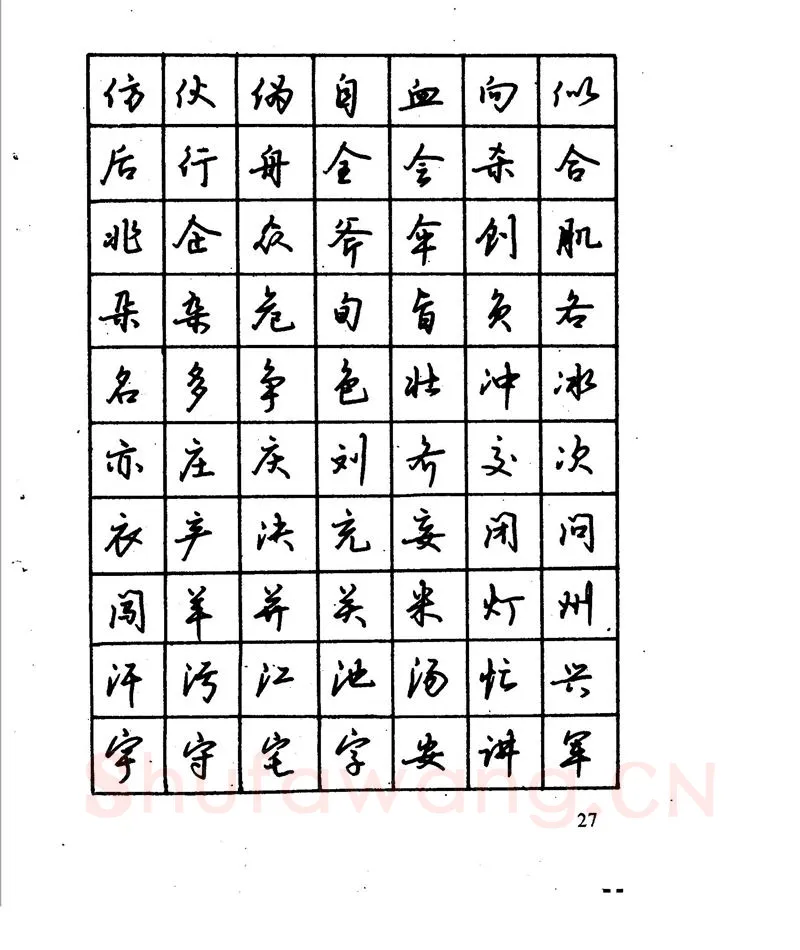 仿 伙 伪 自 血 向 似
后 行 舟 全 会 杀 合
兆 企 众 爷 伞 创 肌
朵 杂 危 旬 旨 负 各
名 多 争 色 壮 冲 冰
亦 庄 庆 刘 齐 交 次
衣 产 决 充 妄 闭 问
闯 羊 并 关 米 灯 州
汗 污 江 池 汤 忙 兴
宇 守 宅 字 安 讲 军
Shufawang.CN
27